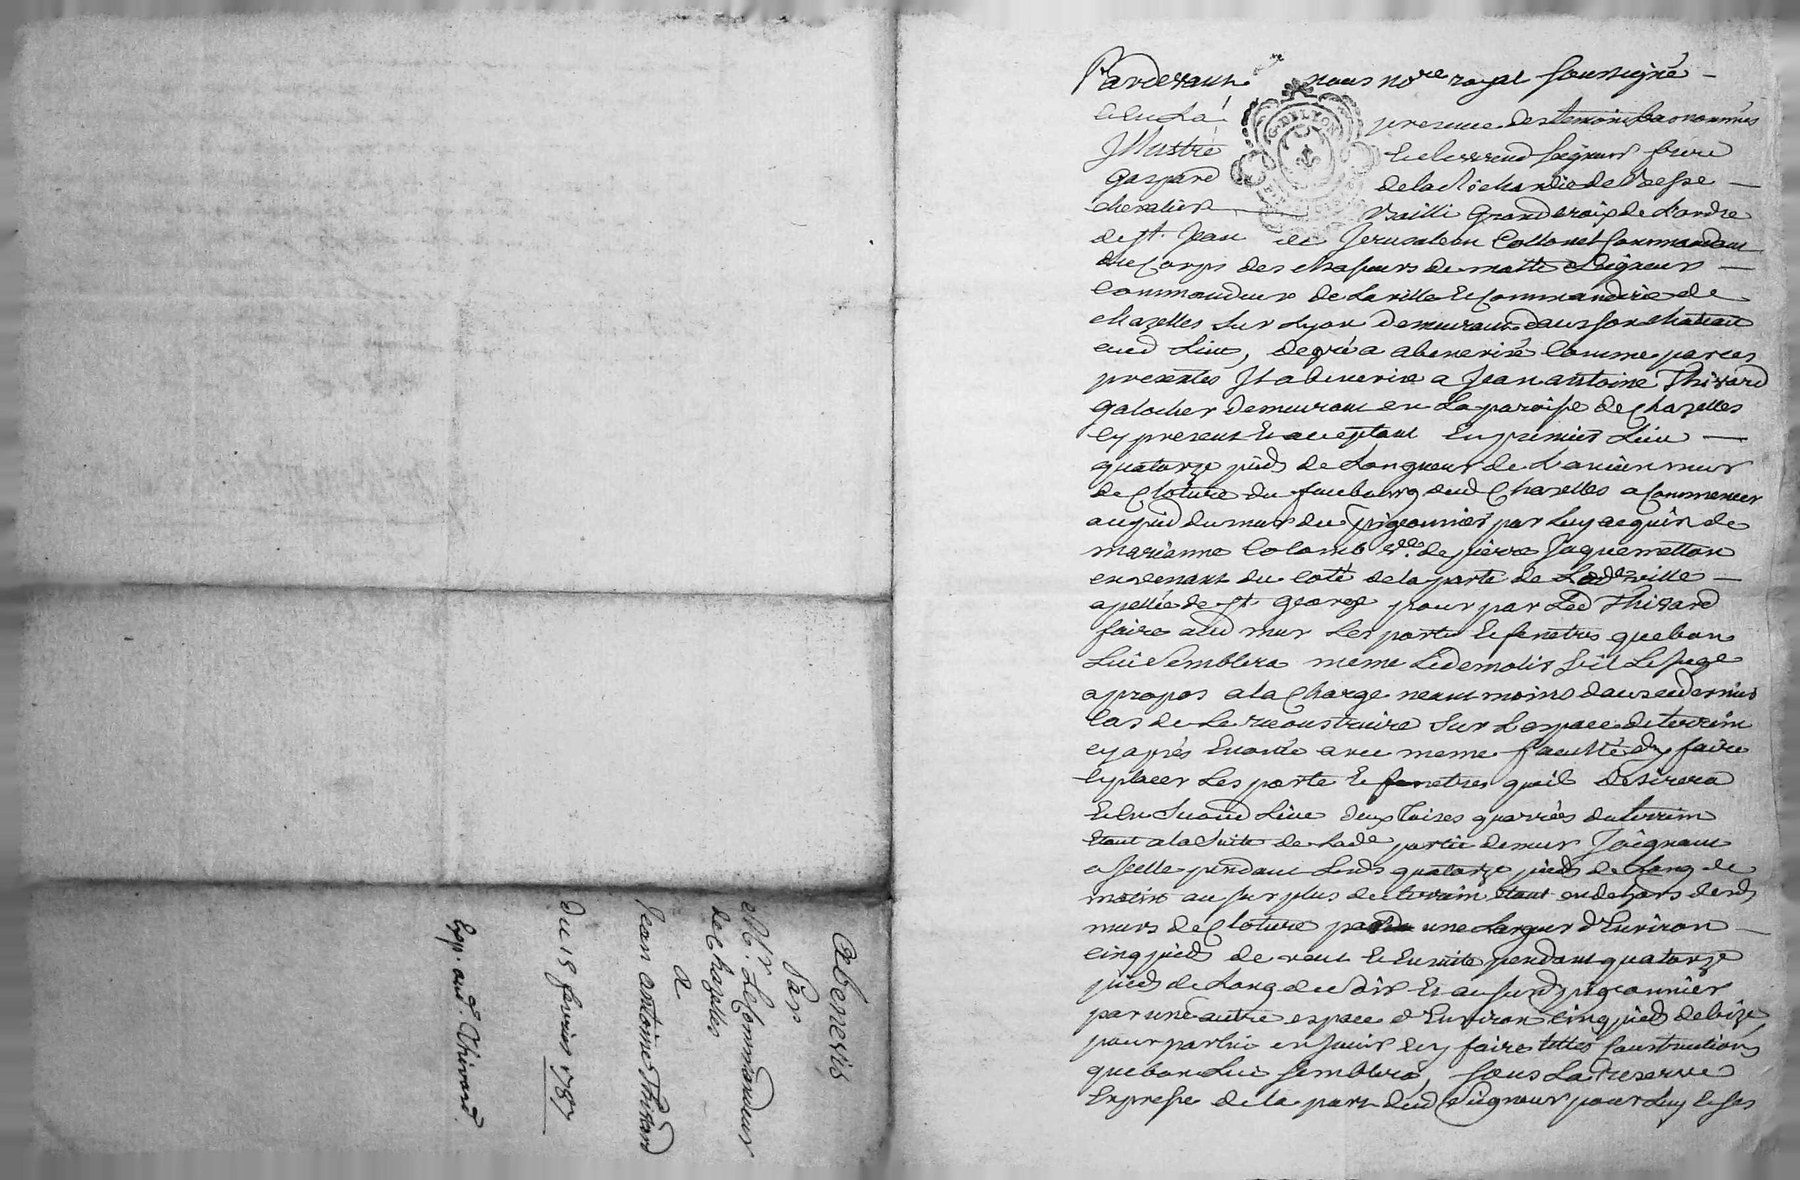 Pardevant nous no.re royal soussigné
et en la presence des temoins bas nommés
Illustre et reverend seigneur frere
Gaspard de la Richardie de Besse
chevalier Bailli Grand croix de L'ordre
de St. Jean de Jerusalem Collonel Commandant
du Corps des chasseurs de malte Seigneur
Commandeur de La ville et Commanderie de
chazelles sur Lyon demeurant dans son chateau
aud Lieu, de gré a abenevisé comme par ces
presentes Il abenevise a Jean antoine Thivard
galocher demeurant en La paroisse de Chazelles
cy present et acceptant En premier Lieu
quatorze pieds de Longueur de L'ancien mur
de Cloture du faubourg dud Chazelles a Commencer
au pied du mur du pigeonnier par Luy acquis de
marianne Colomb v.ve de pierre Jaquemetton
en venant du coté de la porte de Lad.e ville
apellée de St George pour par Led Thivard
faire aud mur Les porte et fenetres que bon
Lui Semblera meme Le demolir s'il Le juge
apropos a la Charge neaut moins dans ce dernier
Cas de Le reconstruire sur L'espace de terrein
cy aprés Enoncé avec meme faculté d'y faire
et placer Les porte et fenetres quil desirera
Et En Second Lieu deux Toises quarrées de terrein
Etant a la Suite de Lad.e partie de mur Joignant
a Icelle pendant Lesds quatorze pieds de Long de
matin au surplus de terrein etant en dehors desds
murs de Cloture par une Largeur d'Environ
cinq pieds de vent et Ensuite pendant quatorze
pieds de Long de soir Et au susd pigeonnier
par une autre espace d'Environ Cinq pieds de bize
pour par lui en jouir et y faire telles Constructions
que bon Lui semblera, sous La reserve
Expresse de la part dud Seigneur pour Luy et ses
Abenevis
Par
Mr. Le Commandeur
de Chazelles
A
Jean antoine Thivard
Du 15 fevrier 1787
Exp. aud. Thivard.
G. DE LYON